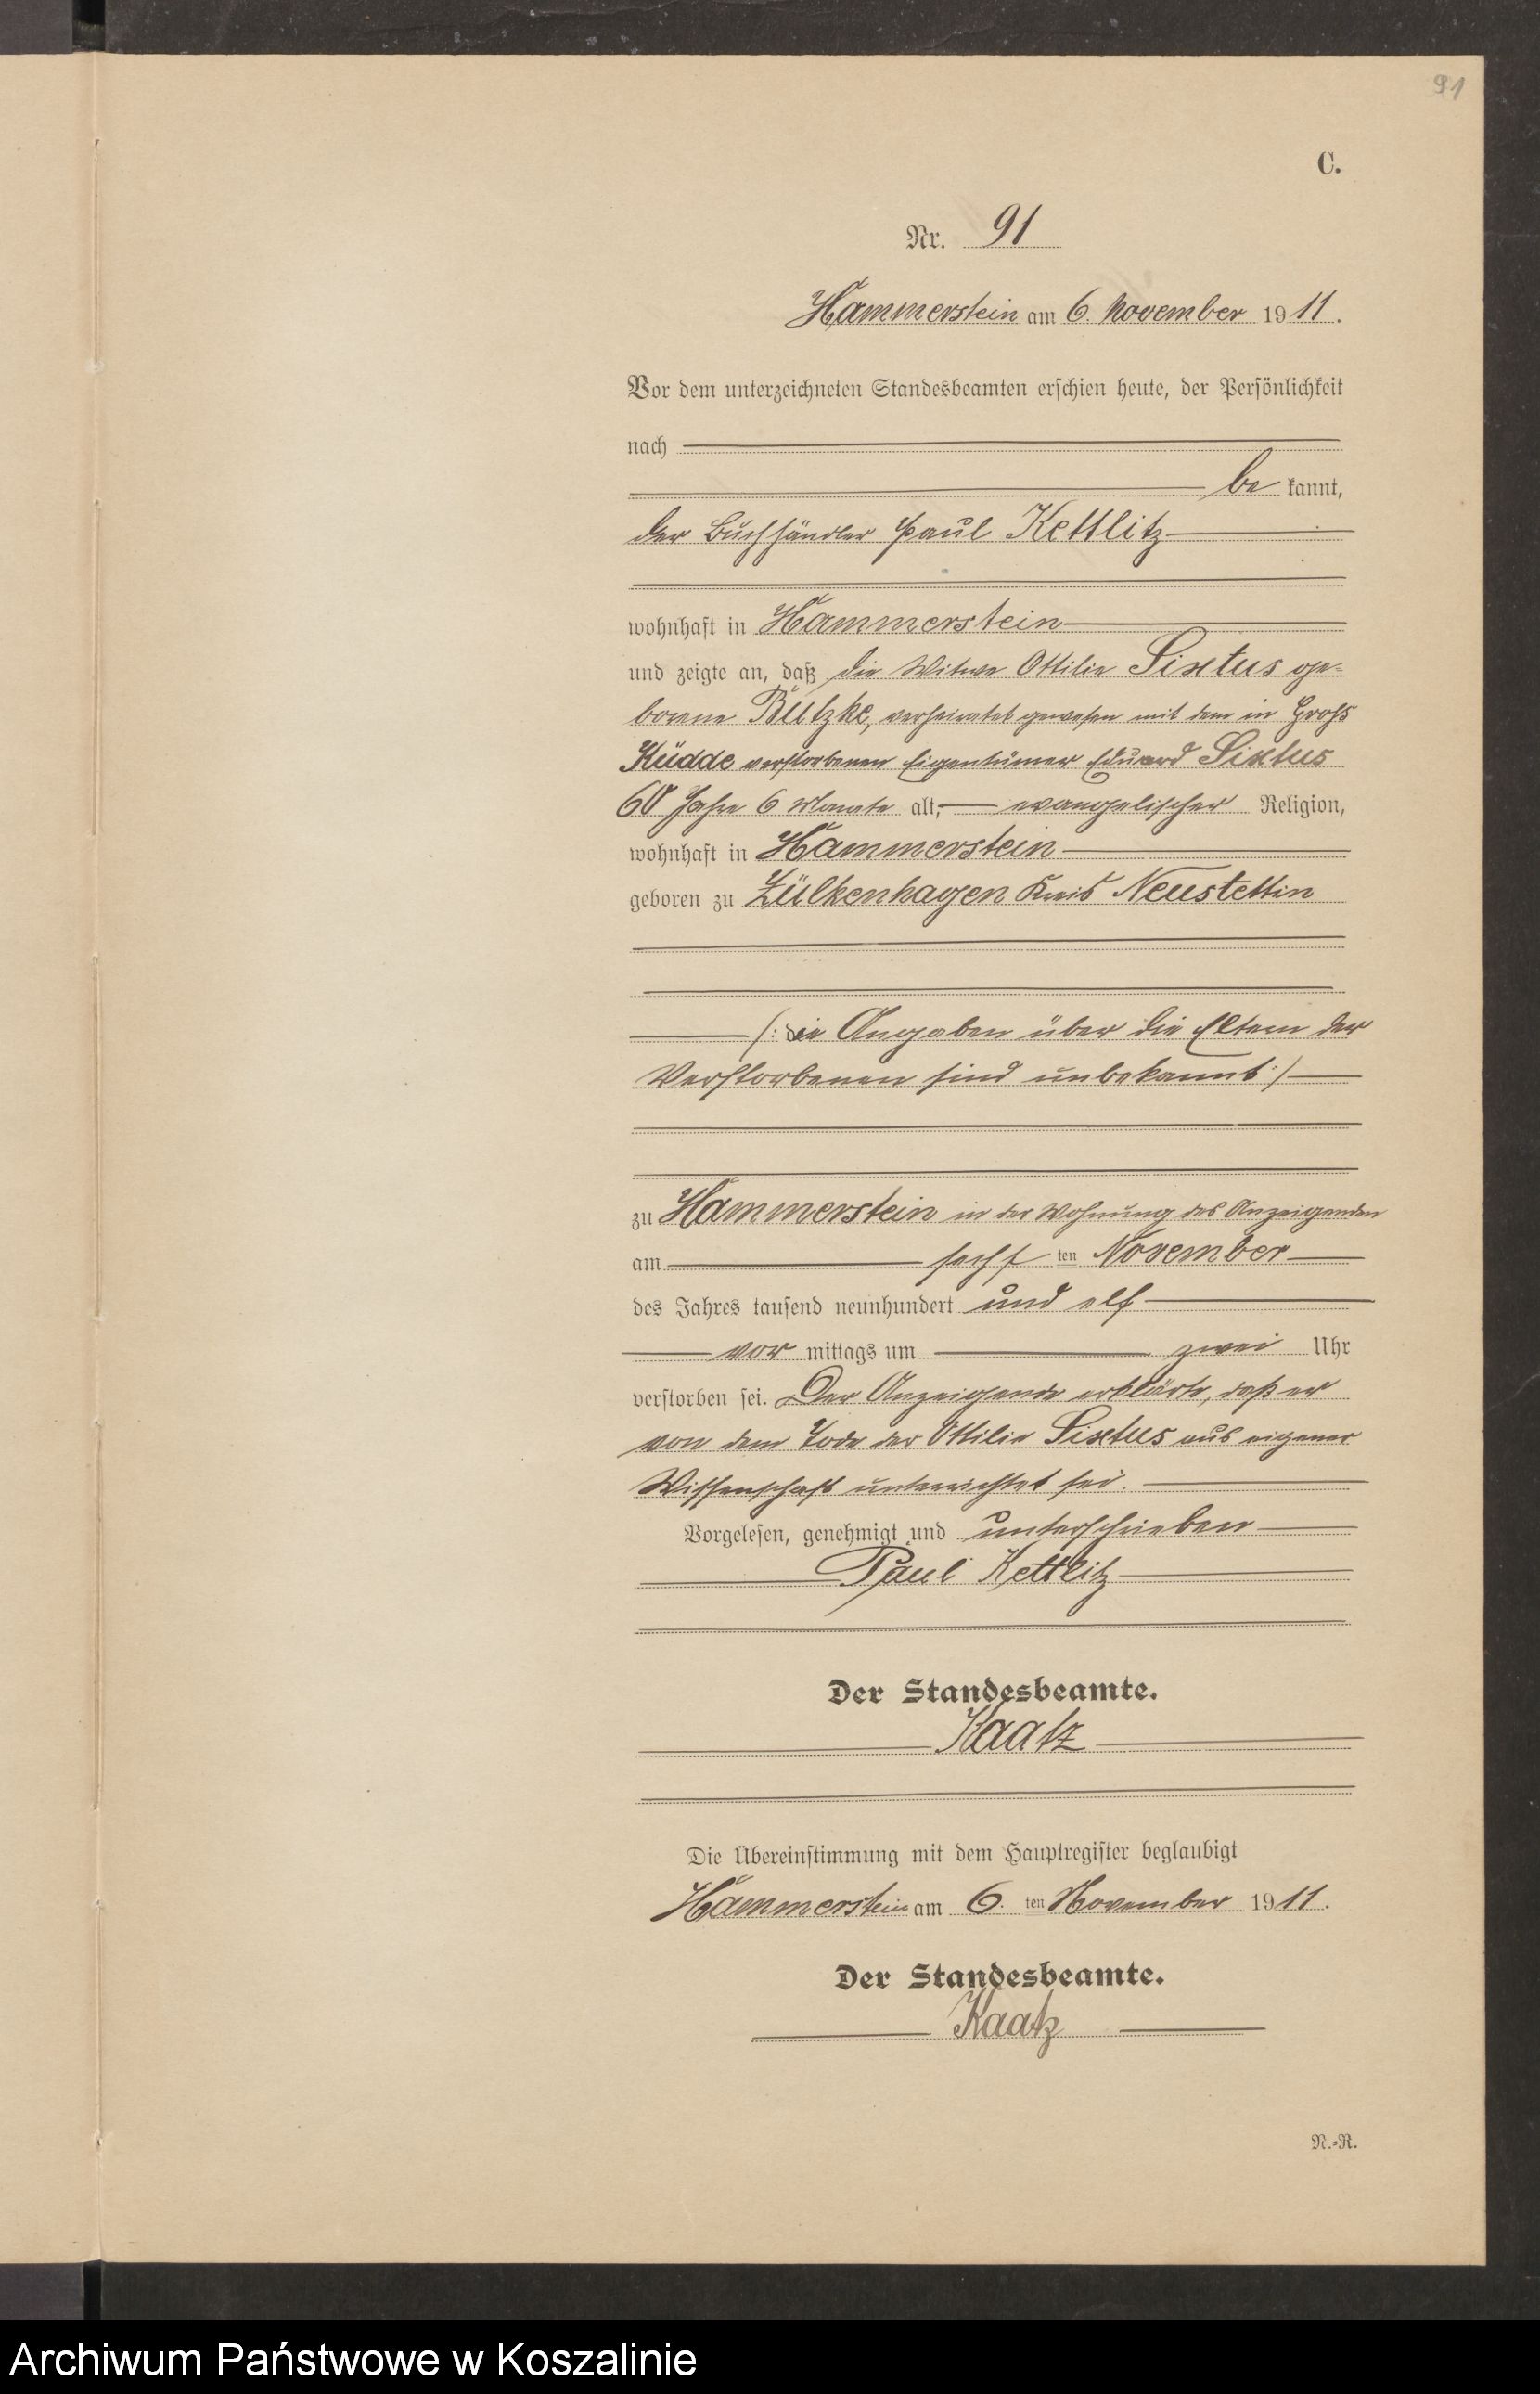 91
C.
Nr. 91
Hammerstein am 6. November 1911.
Vor dem unterzeichneten Standesbeamten erschien heute, der Persönlichkeit
nach
be kannt,
der Buchhändler Paul Kettlitz
wohnhaft in Hammerstein
und zeigte an, daß die Witwe Ottilie Sixtus ge-
borene Bützke, verheiratet gewesen mit dem in Groß
Küdde verstorbenen Eigentümer Eduard Sixtus
60 Jahre 6 Monate alt, evangelischer Religion,
wohnhaft in Hammerstein
geboren zu Zülkenhagen Kreis Neustettin
(: die Angaben über die Eltern der
Verstorbenen sind unbekannt :)
zu Hammerstein in der Wohnung des Anzeigenden
am sechsten November
des Jahres tausend neunhundert und elf
vor mittags um zwei Uhr
verstorben sei. Der Anzeigende erklärte, daß er
von dem Tode der Ottilie Sixtus aus eigener
Wissenschaft unterrichtet sei.
Vorgelesen, genehmigt und unterschrieben
Paul Kettlitz
Der Standesbeamte.
Kaatz
Die Übereinstimmung mit dem Hauptregister beglaubigt
Hammerstein am 6. ten November 1911.
Der Standesbeamte.
Kaatz
N.-R.
Archiwum Państwowe w Koszalinie